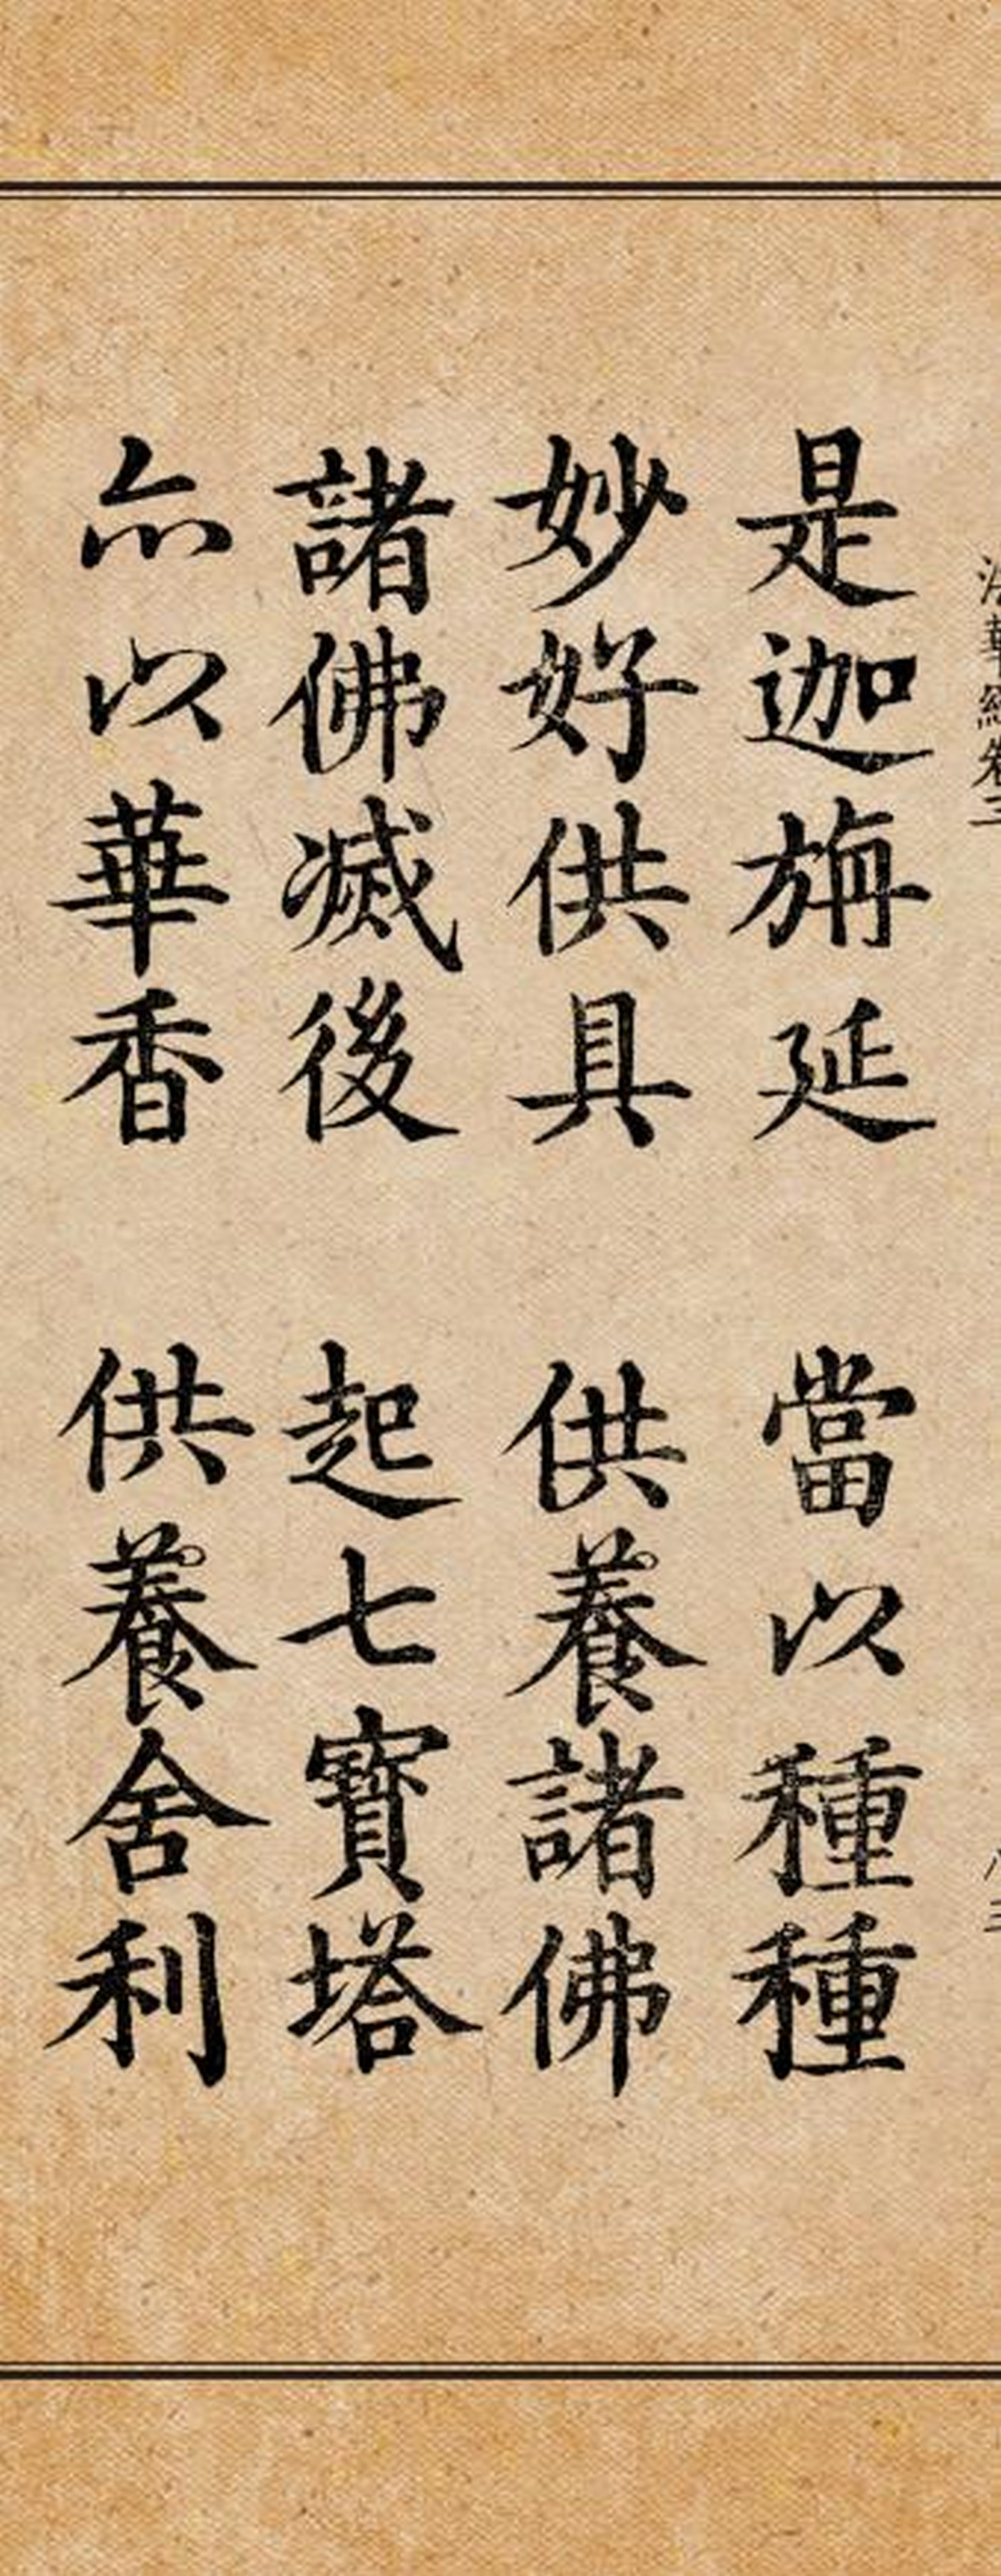 法華經卷三
是迦旃延 當以種種
妙好供具 供養諸佛
諸佛滅後 起七寶塔
亦以華香 供養舍利